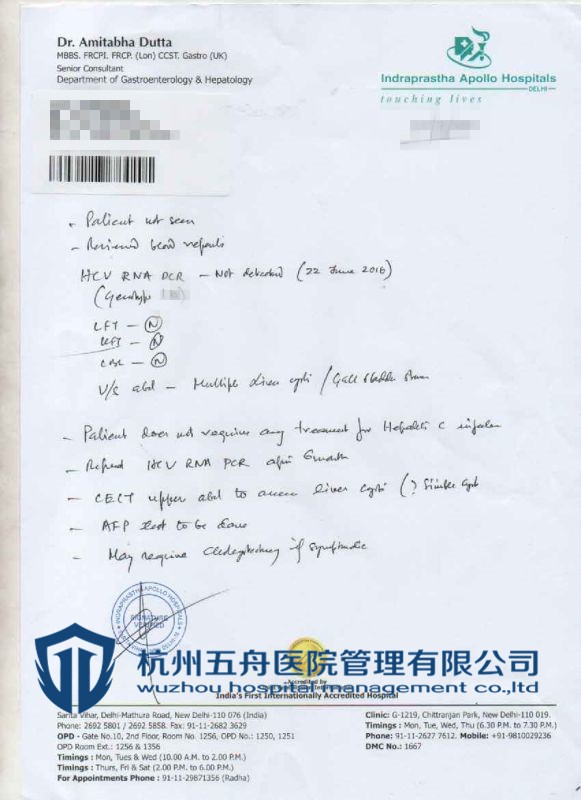 Dr. Amitabha Dutta
MBBS. FRCPI. FRCP. (Lon) CCST. Gastro (UK)
Senior Consultant
Department of Gastroenterology & Hepatology
Indraprastha Apollo Hospitals
DELHI
touching lives
- Patient not seen
- Reviewed blood reports
HCV RNA PCR - Not detected (22 June 2016)
(Genotype
LFT - N
KFT - N
CBC - N
U/S abd - Multiple liver cysts / Gall bladder stone
- Patient does not require any treatment for Hepatitis C infection
- Repeat HCV RNA PCR after 6 month
- CECT upper abd to assess liver cysts (? Simple cyst
- AFP test to be done
- May require cholecystectomy if symptomatic
INDRAPRASTHA APOLLO HOSPITALS
SIGNATURE VERIFIED
杭州五舟医院管理有限公司
wuzhou hospital management co.,ltd
Accredited by
India's First Internationally Accredited Hospital
Sarita Vihar, Delhi-Mathura Road, New Delhi-110 076 (India)
Phone: 2692 5801 / 2692 5858. Fax: 91-11-2682 3629
OPD - Gate No.10, 2nd Floor, Room No. 1256, OPD No.: 1250, 1251
OPD Room Ext.: 1256 & 1356
Timings : Mon, Tues & Wed (10.00 A.M. to 2.00 P.M.)
Timings : Thurs, Fri & Sat (2.00 P.M. to 6.00 P.M.)
For Appointments Phone : 91-11-29871356 (Radha)
Clinic: G-1219, Chittranjan Park, New Delhi-110 019.
Timings : Mon, Tue, Wed, Thu (6.30 P.M. to 7.30 P.M.)
Phone: 91-11-2627 7612. Mobile: +91-9810029236
DMC No.: 1667